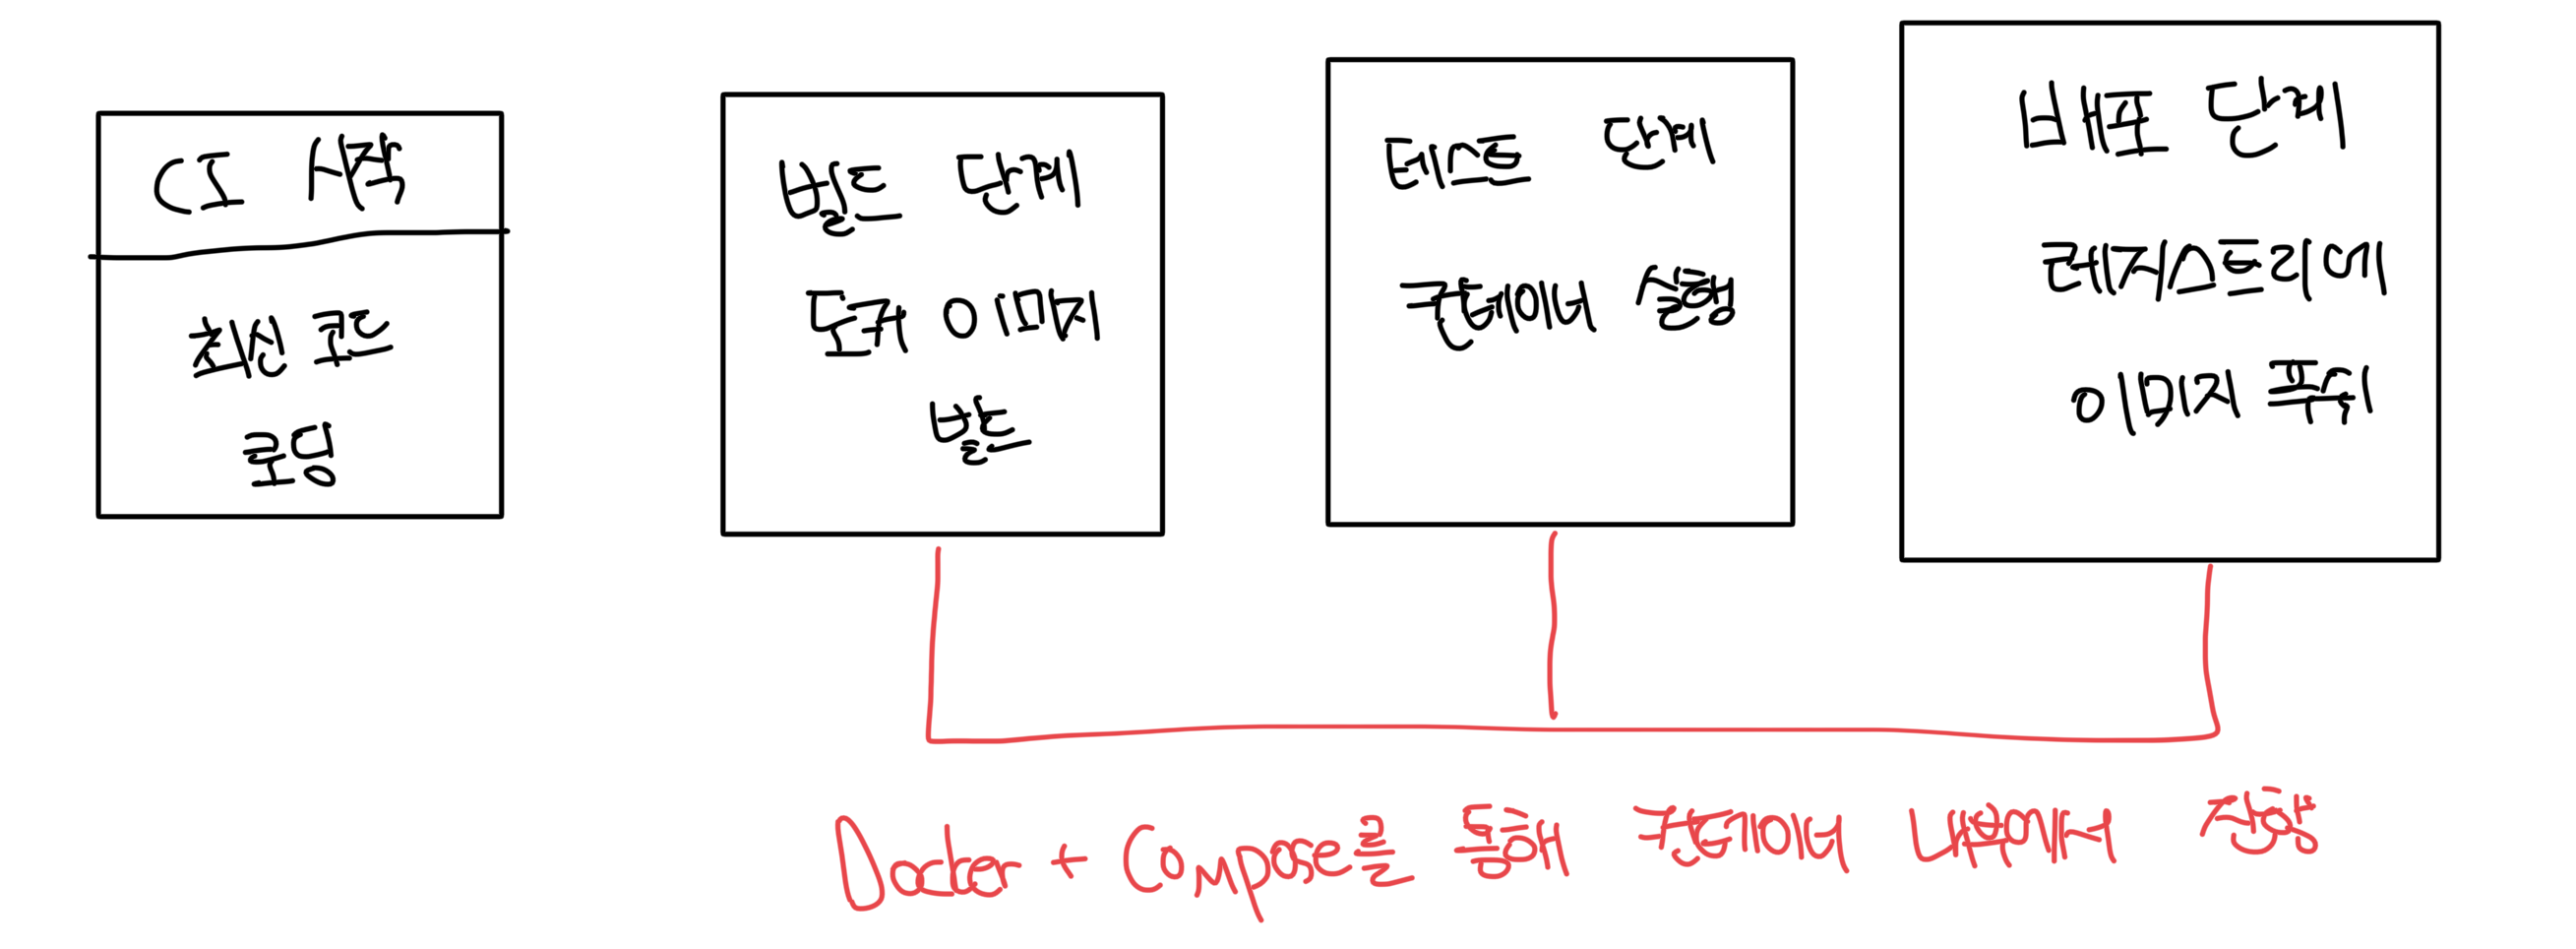 CI 시작
최신 코드
로딩
빌드 단계
도커 이미지
빌드
테스트 단계
컨테이너 실행
배포 단계
레지스트리에
이미지 푸쉬
Docker + Compose를 통해 컨테이너 내부에서 진행